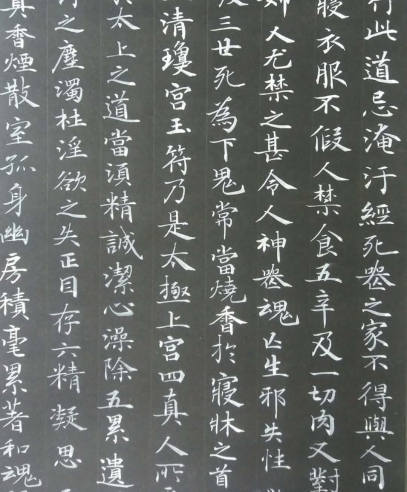 行此道忌淹汙經死喪之家不得與人同
寢衣服不假人禁食五辛及一切肉又對
婦人尤禁之甚令人神喪魂亡生邪失性
三世死為下鬼常當燒香於寢牀之首
清瓊宮玉符乃是太極上宮四真人所
太上之道當須精誠潔心澡除五累遺
之塵濁杜淫欲之失正目存六精凝思
真香煙散室孤身幽房積毫累著和魂